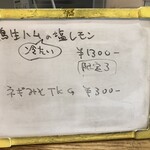 鳥生ハムの塩レモン
冷たい ¥1300-
限定3
ネギみそTKG ¥300-